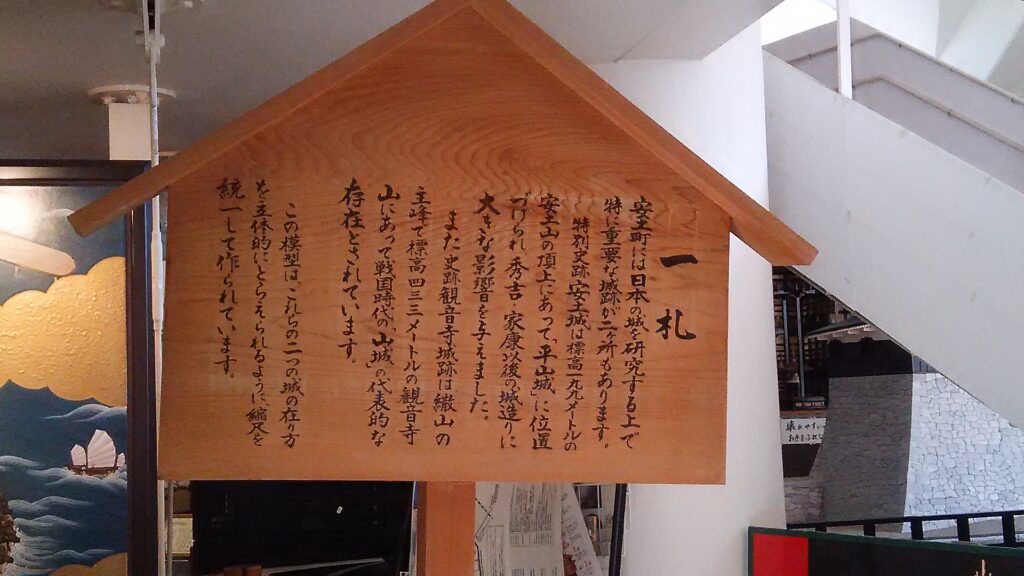 一札
安土町には日本の城を研究する上で
特に重要な城跡が二ヶ所もあります。
特別史跡、安土城は標高一九九メートルの
安土山の頂上にあって「平山城」に位置
づけられ、秀吉、家康以後の城造りに
大きな影響を与えました。
また史跡観音寺城跡は繖山の
主峰で標高四三三メートルの観音寺
山にあって戦国時代の「山城」の代表的な
存在とされています。
この模型は、これらの二つの城の在り方
を立体的にとらえられるように、縮尺を
統一して作られています。